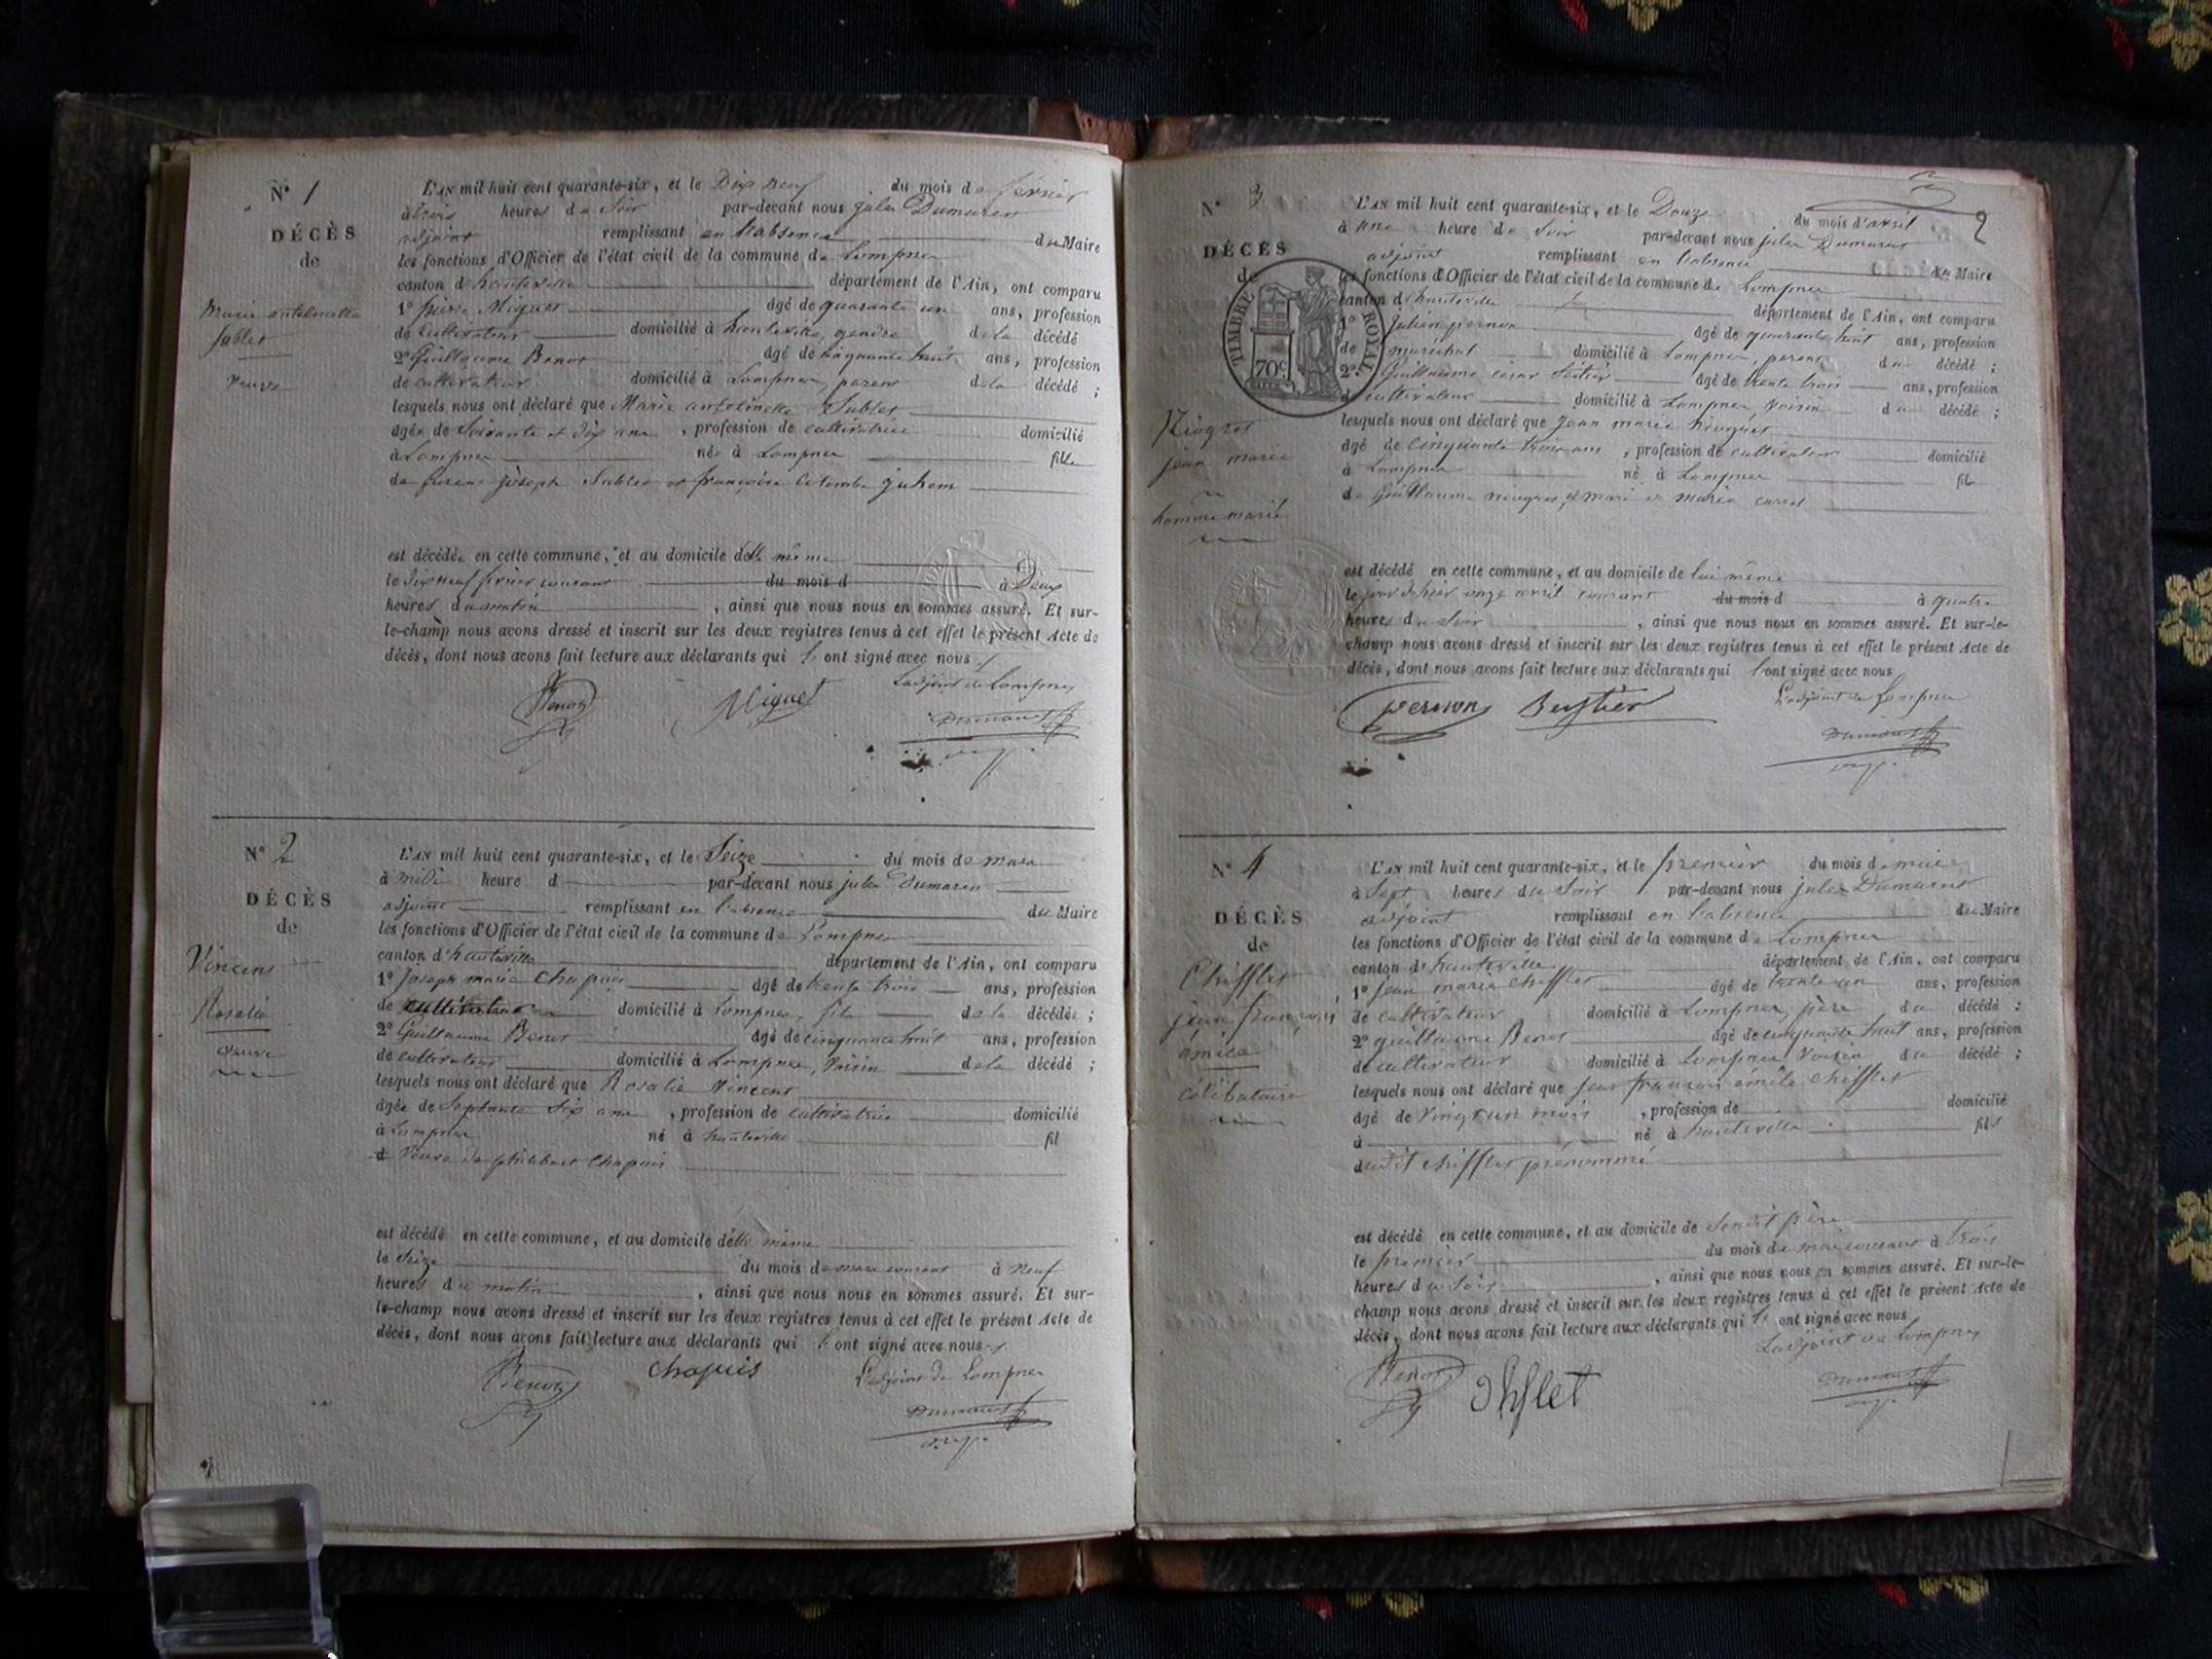 N° 1
DÉCÈS
de
Marie antelmette
Sublet
veuve
L'AN mil huit cent quarante-six, et le Dix neuf du mois de février
à trois heures du Soir par-devant nous jules Dumarest
adjoint remplissant en l'absence du Maire
les fonctions d'Officier de l'état civil de la commune de Lompnes
canton d'hauteville département de l'Ain, ont comparu
1° pierre Miguet âgé de quarante un ans, profession
de cultivateur domicilié à hauteville, gendre de la décédé
2° Guillaume Benot âgé de cinquante huit ans, profession
de cultivateur domicilié à Lompnes, parent de la décédé ;
lesquels nous ont déclaré que Marie antelmette Sublet
âgée de Soixante et dix ans, profession de cultivatrice domicilié
à Lompnes née à Lompnes fille
de joseph Sublet et françoise Colombe
est décédée en cette commune, et au domicile d'elle même
le dix neuf février courant du mois d à Deux
heures du matin, ainsi que nous nous en sommes assuré. Et sur-
le-champ nous avons dressé et inscrit sur les deux registres tenus à cet effet le présent Acte de
décès, dont nous avons fait lecture aux déclarants qui l'ont signé avec nous
L'adjoint de Lompnes
Benot Miguet
Dumarest
N° 2
DÉCÈS
de
Vincent
Rosalie
veuve
L'AN mil huit cent quarante-six, et le Seize du mois de mars
à midi heure d par-devant nous jules Dumarest
adjoint remplissant en l'absence du Maire
les fonctions d'Officier de l'état civil de la commune de Lompnes
canton d'hauteville département de l'Ain, ont comparu
1° Joseph marie Chapuis âgé de trente trois ans, profession
de cultivateur domicilié à Lompnes, fils de la décédée ;
2° Guillaume Benot âgé de cinquante huit ans, profession
de cultivateur domicilié à Lompnes, voisin de la décédé ;
lesquels nous ont déclaré que Rosalie Vincent
âgée de Septante Six ans, profession de cultivatrice domicilié
à Lompnes né à hauteville fil
d Veuve de philibert Chapuis
est décédé en cette commune, et au domicile d'elle même
le Seize du mois de mars courant à Neuf
heures du matin, ainsi que nous nous en sommes assuré. Et sur-
le-champ nous avons dressé et inscrit sur les deux registres tenus à cet effet le présent Acte de
décès, dont nous avons fait lecture aux déclarants qui l'ont signé avec nous
Benot chapuis L'adjoint de Lompnes
Dumarest
2
N° 3
DÉCÈS
de
TIMBRE ROYAL
70c
Niogret
jean marie
homme marié
L'AN mil huit cent quarante-six, et le Douze du mois d'avril
à une heure du Soir par-devant nous jules Dumarest
adjoint remplissant en l'absence du Maire
les fonctions d'Officier de l'état civil de la commune de Lompnes
canton d'hauteville département de l'Ain, ont comparu
1° Julien pernon âgé de quarante huit ans, profession
de maréchal domicilié à Lompnes, parent du décédé ;
2° Guillaume cesar âgé de trente trois ans, profession
de cultivateur domicilié à Lompnes, voisin du décédé ;
lesquels nous ont déclaré que jean marie niogret
âgé de cinquante trois ans, profession de cultivateur domicilié
à Lompnes né à Lompnes fils
de Guillaume niogret, et mari de marie carrel
est décédé en cette commune, et au domicile de lui même
le jour d'hier onze avril courant du mois d à quatre
heures du Soir, ainsi que nous nous en sommes assuré. Et sur-le-
champ nous avons dressé et inscrit sur les deux registres tenus à cet effet le présent Acte de
décès, dont nous avons fait lecture aux déclarants qui l'ont signé avec nous
L'adjoint de Lompnes
pernon
Dumarest
N° 4
DÉCÈS
de
Chifflet
jean françois
émile
célibataire
L'AN mil huit cent quarante-six, et le premier du mois de mai
à Sept heures du Soir par-devant nous jules Dumarest
adjoint remplissant en l'absence du Maire
les fonctions d'Officier de l'état civil de la commune de Lompnes
canton d'hauteville département de l'Ain, ont comparu
1° jean marie chifflet âgé de trente un ans, profession
de cultivateur domicilié à Lompnes, père du décédé ;
2° guillaume Benot âgé de cinquante huit ans, profession
de cultivateur domicilié à Lompnes voisin du décédé ;
lesquels nous ont déclaré que jean françois émile chifflet
âgé de vingt un mois, profession de domicilié
à né à hauteville fils
dudit chifflet prénommé
est décédé en cette commune, et au domicile de Sondit père
le premier du mois de mai courant à trois
heures du Soir, ainsi que nous nous en sommes assuré. Et sur-le-
champ nous avons dressé et inscrit sur les deux registres tenus à cet effet le présent Acte de
décès, dont nous avons fait lecture aux déclarants qui l'ont signé avec nous
L'adjoint de Lompnes
Benot chiflet
Dumarest